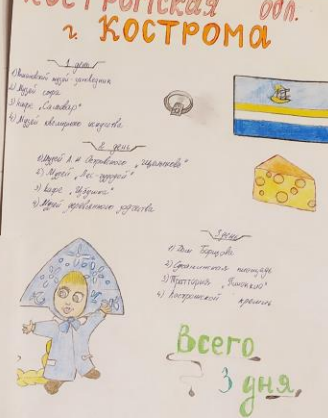 Костромская обл.
г. Кострома
1 день
музей-заповедник
2) Музей сыра
3) Кафе „Самовар"
4) Музей ювелирного искусства
2 день
1) Музей А. Н. Островского „Щелыково"
2) Музей „Лес-чудодей"
3) Кафе
4) Музей деревянного зодчества
3 день
1) Дом
2) Сусанинская площадь
3) Траттория „Пиноккио"
4) Костромской кремль
Всего
3 дня.